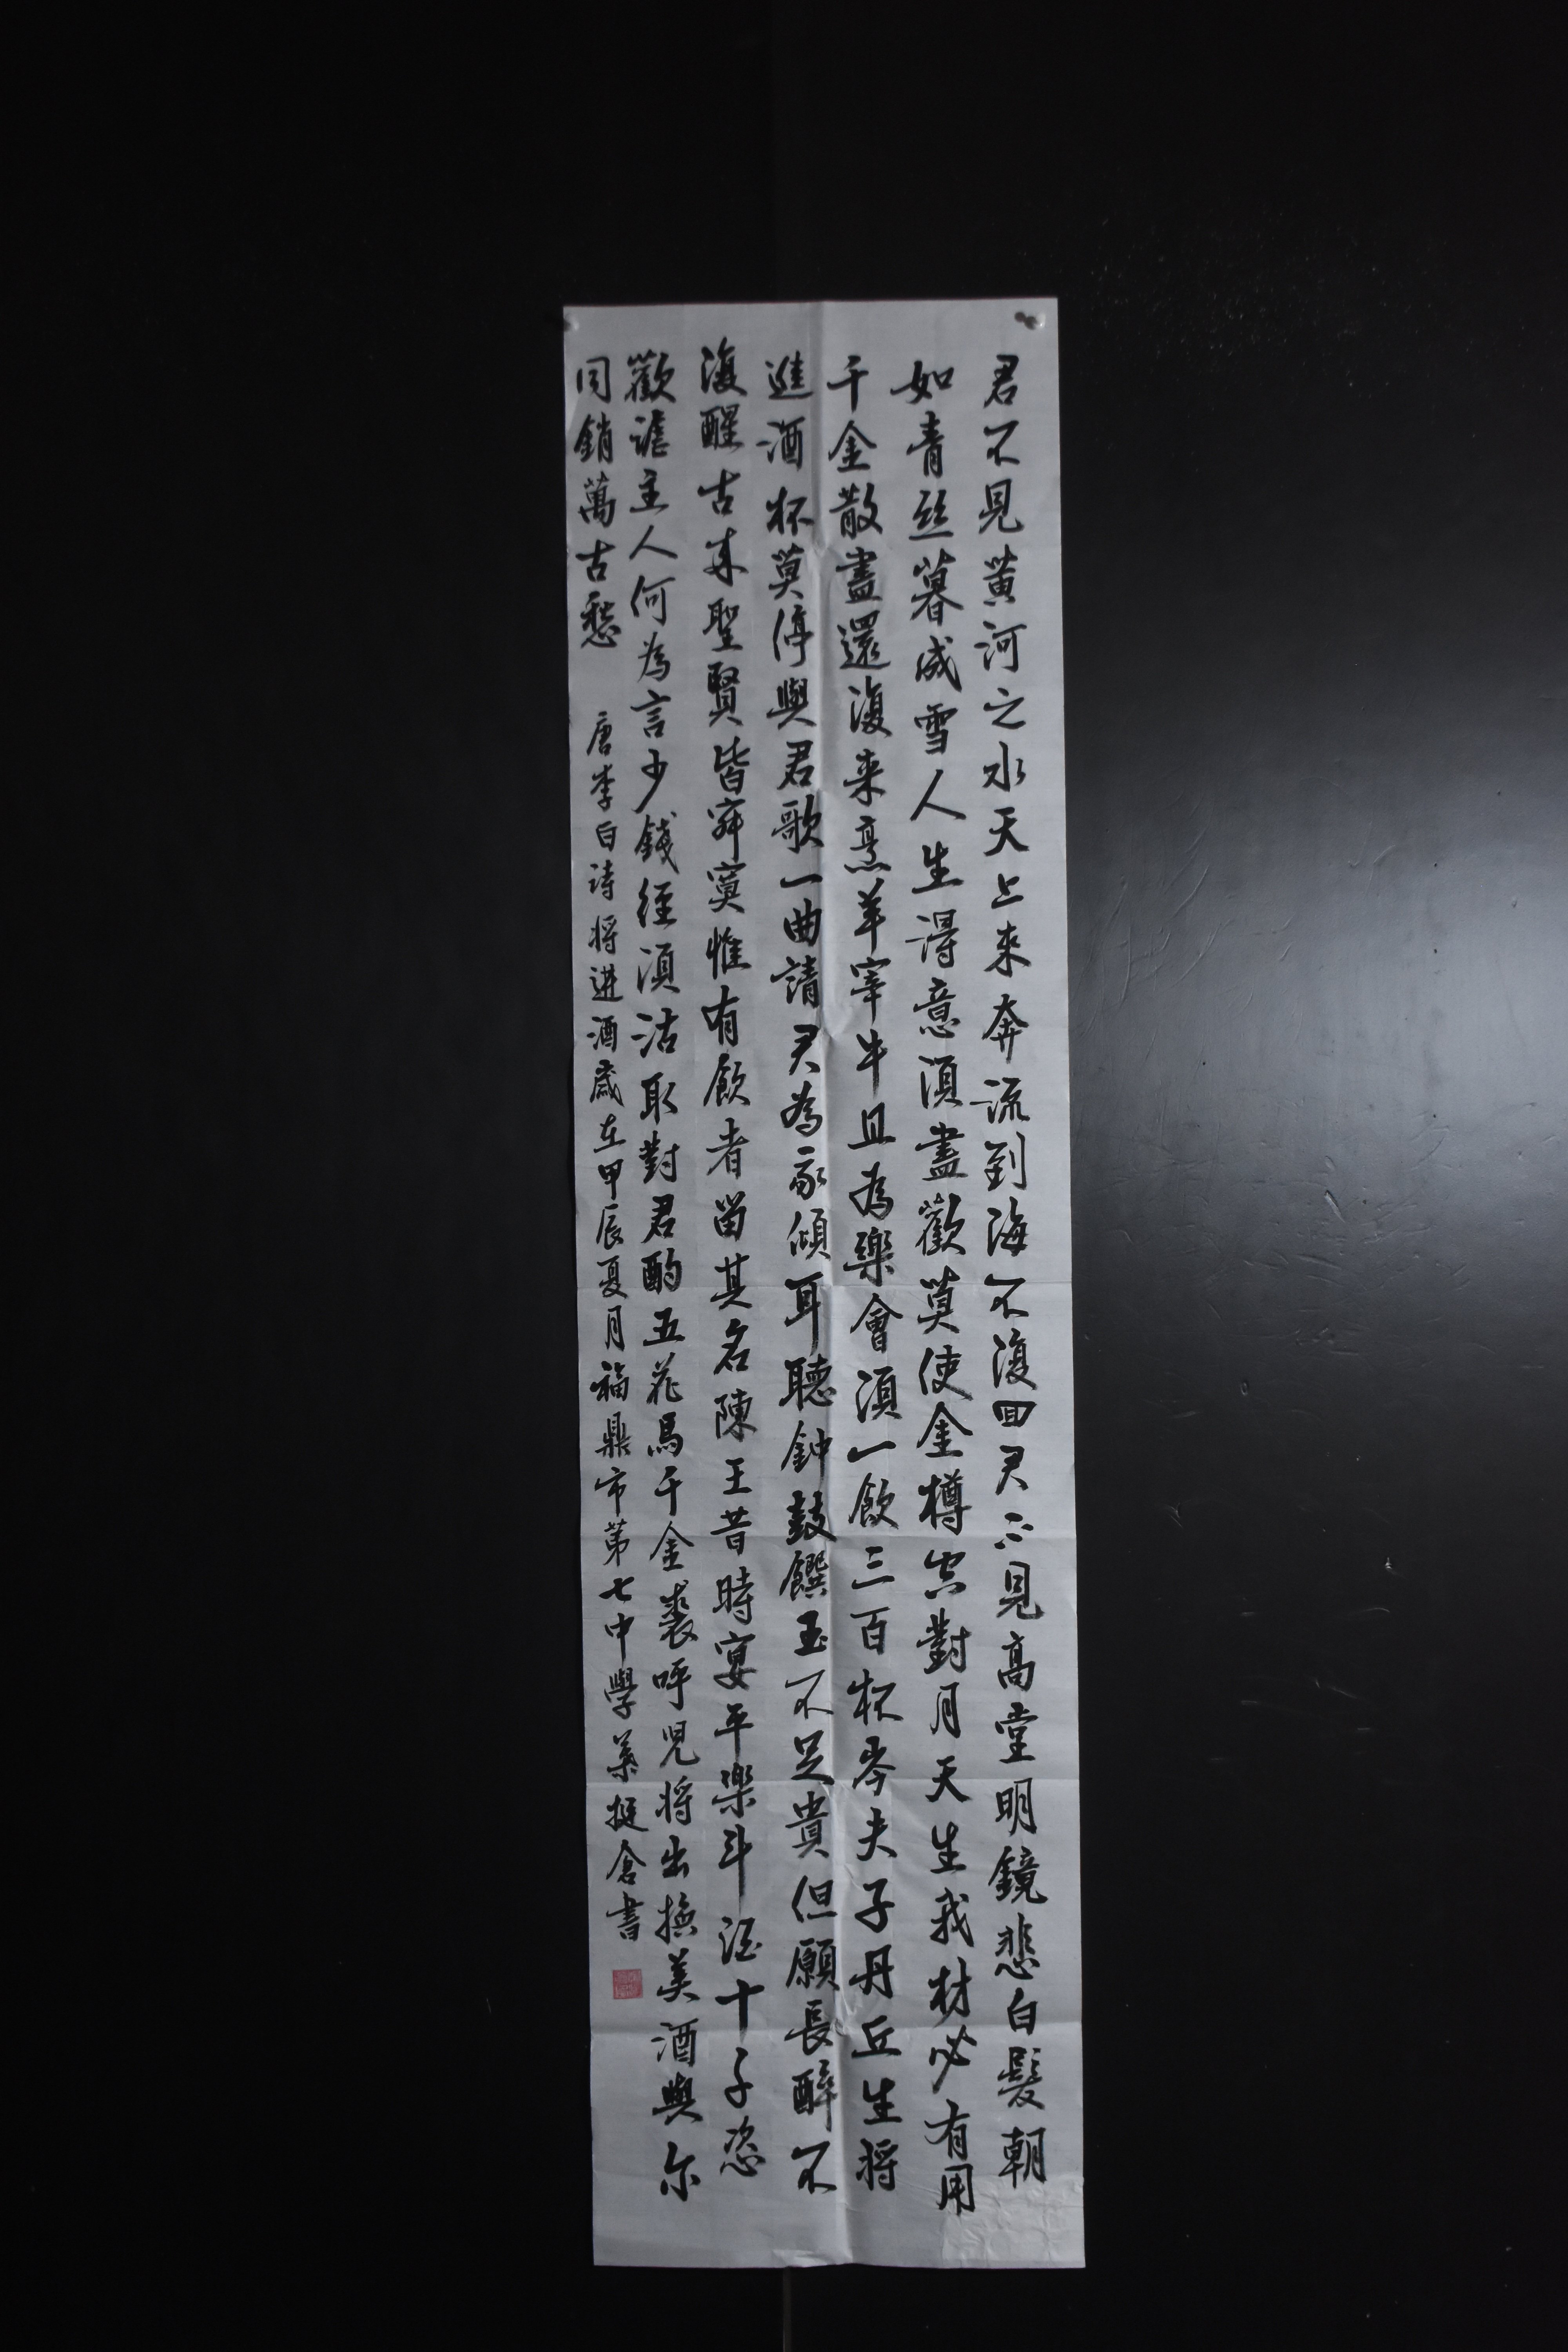 君不見黃河之水天上來奔流到海不復回君不見高堂明鏡悲白髮朝
如青丝暮成雪人生得意須盡歡莫使金樽空對月天生我材必有用
千金散盡還復来烹羊宰牛且為樂會須一飲三百杯岑夫子丹丘生将
進酒杯莫停與君歌一曲請君為我傾耳聽鈡鼓饌玉不足貴但願長醉不
復醒古來聖賢皆寂寞惟有飲者留其名陳王昔時宴平樂斗酒十千恣
歡謔主人何為言少錢徑須沽取對君酌五花馬千金裘呼兒将出換美酒與尔
同銷萬古愁 唐李白诗将进酒歲在甲辰夏月福鼎市第七中學葉挺倉書